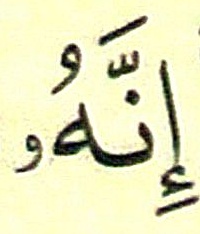 إِنَّهُۥ